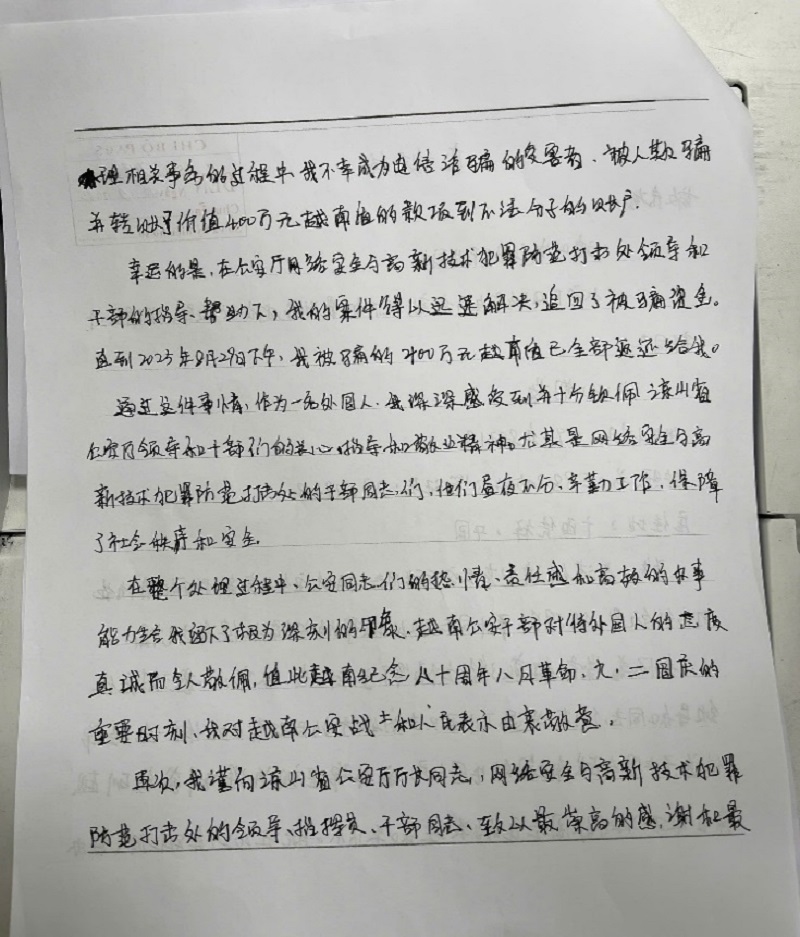 理相关事务的过程中,我不幸成为电信诈骗的受害者,被人欺骗
并转账了价值400万元越南盾的款项到不法分子的账户.
幸运的是,在公安厅网络安全与高新技术犯罪防范打击处领导和
干部的指导、帮助下,我的案件得以迅速解决,追回了被骗资金。
直到2025年8月29日下午,我被骗的400万元越南盾已全部返还给我。
通过这件事情,作为一名外国人,我深深感受到并十分钦佩凉山省
公安厅领导和干部们的关心、指导和敬业精神。尤其是网络安全与高
新技术犯罪防范打击处的干部同志们,他们昼夜不分、辛勤工作,保障
了社会秩序和安全.
在整个处理过程中,公安同志们的热情、责任感和高效的办事
能力给我留下了极为深刻的印象,越南公安干部对待外国人的态度
真诚而令人敬佩,值此越南纪念八十周年八月革命,九.二国庆的
重要时刻,我对越南公安战士和人民表示由衷敬意.
再次,我谨向凉山省公安厅厅长同志,网络安全与高新技术犯罪
防范打击处的领导、指挥员、干部同志,致以最崇高的感谢和最